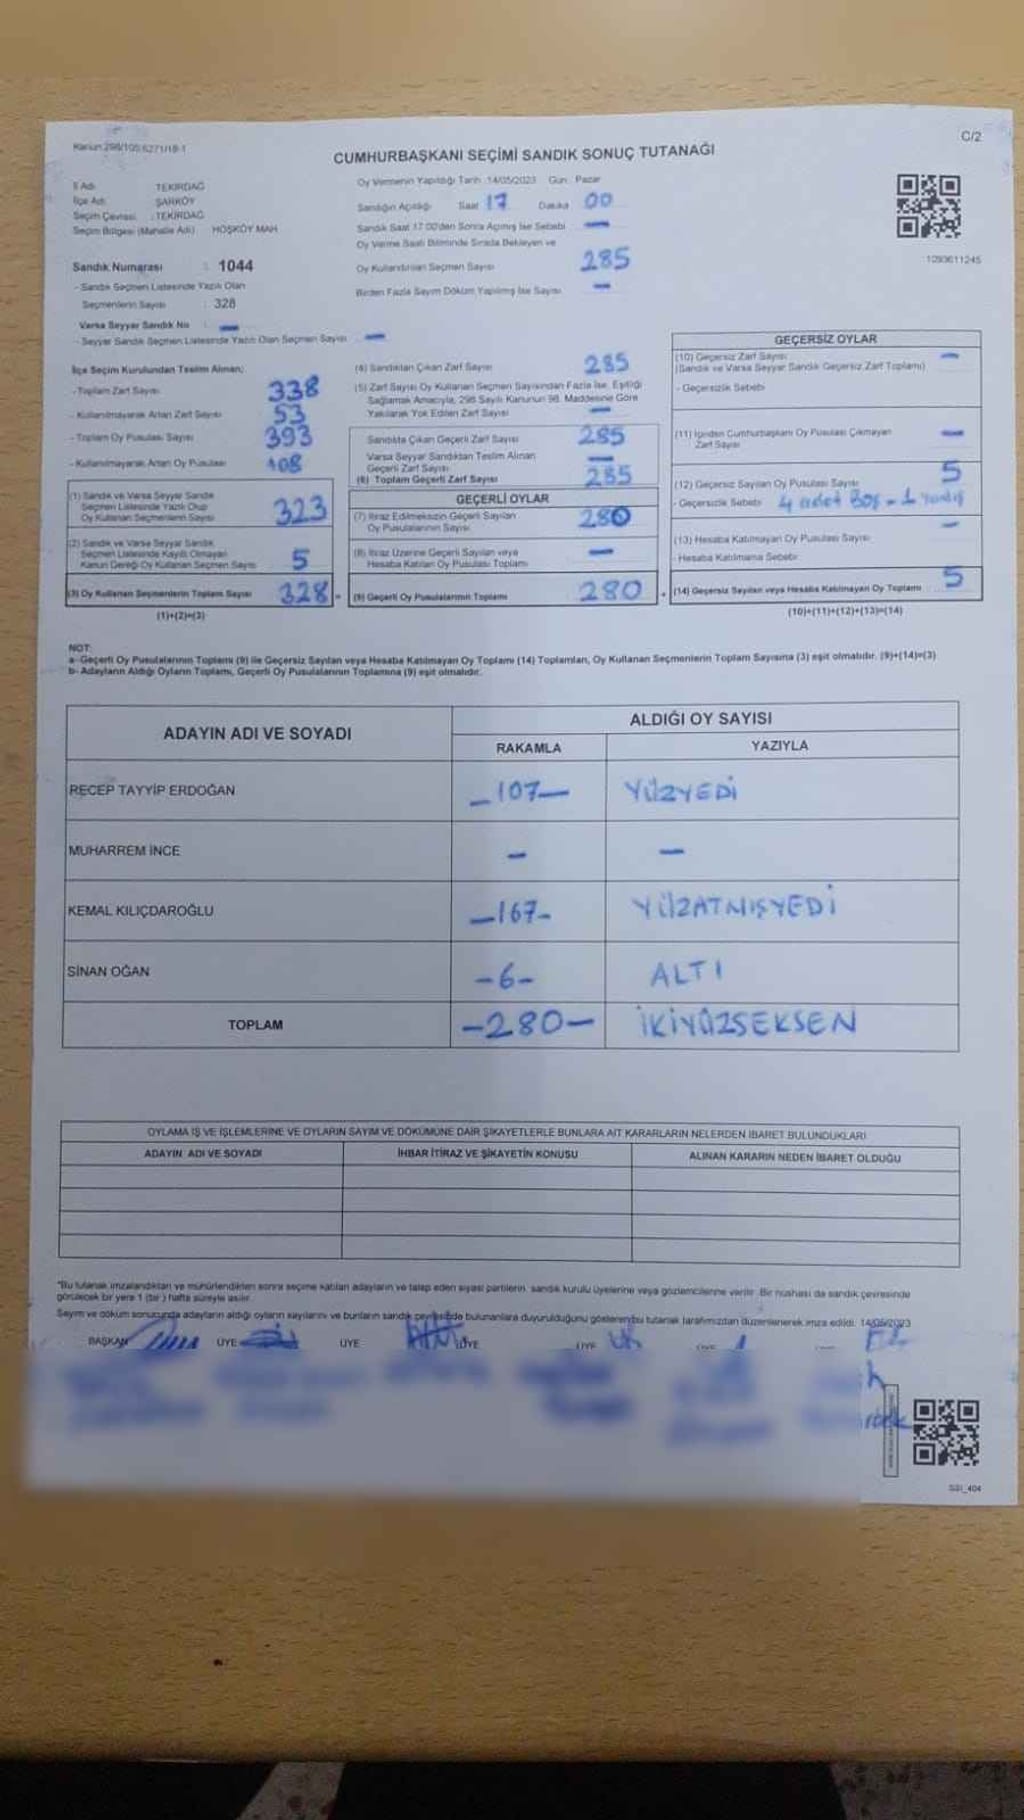 Kanun 298/105,6271/18-1
C/2
CUMHURBAŞKANI SEÇİMİ SANDIK SONUÇ TUTANAĞI
İl Adı : TEKİRDAĞ
İlçe Adı : ŞARKÖY
Seçim Çevresi : TEKİRDAĞ
Seçim Bölgesi (Mahalle Adı) : HOŞKÖY MAH.
Sandık Numarası : 1044
- Sandık Seçmen Listesinde Yazılı Olan
Seçmenlerin Sayısı : 328
Varsa Seyyar Sandık No : –
- Seyyar Sandık Seçmen Listesinde Yazılı Olan Seçmen Sayısı –
Oy Vermenin Yapıldığı Tarih :14/05/2023 Gün : Pazar
Sandığın Açıldığı Saat 17 Dakika 00
Sandık Saat 17.00'den Sonra Açılmış İse Sebebi –
Oy Verme Saati Bitiminde Sırada Bekleyen ve
Oy Kullandırılan Seçmen Sayısı 285
Birden Fazla Sayım Döküm Yapılmış İse Sayısı –
1093611245
İlçe Seçim Kurulundan Teslim Alınan;
- Toplam Zarf Sayısı 338
- Kullanılmayarak Artan Zarf Sayısı 53
- Toplam Oy Pusulası Sayısı 393
- Kullanılmayarak Artan Oy Pusulası 108
(1) Sandık ve Varsa Seyyar Sandık
Seçmen Listesinde Yazılı Olup
Oy Kullanan Seçmenlerin Sayısı 323
(2) Sandık ve Varsa Seyyar Sandık
Seçmen Listesinde Kayıtlı Olmayan
Kanun Gereği Oy Kullanan Seçmen Sayısı 5
(3) Oy Kullanan Seçmenlerin Toplam Sayısı 328 =
(1)+(2)=(3)
(4) Sandıktan Çıkan Zarf Sayısı 285
(5) Zarf Sayısı Oy Kullanan Seçmen Sayısından Fazla İse, Eşitliği
Sağlamak Amacıyla, 298 Sayılı Kanunun 98. Maddesine Göre
Yakılarak Yok Edilen Zarf Sayısı –
Sandıkta Çıkan Geçerli Zarf Sayısı 285
Varsa Seyyar Sandıktan Teslim Alınan
Geçerli Zarf Sayısı –
(6) Toplam Geçerli Zarf Sayısı 285
GEÇERLİ OYLAR
(7) İtiraz Edilmeksizin Geçerli Sayılan
Oy Pusulalarının Sayısı 280
(8) İtiraz Üzerine Geçerli Sayılan veya
Hesaba Katılan Oy Pusulası Toplamı –
(9) Geçerli Oy Pusulalarının Toplamı 280 +
GEÇERSİZ OYLAR
(10) Geçersiz Zarf Sayısı –
(Sandık ve Varsa Seyyar Sandık Geçersiz Zarf Toplamı)
- Geçersizlik Sebebi
(11) İçinden Cumhurbaşkanı Oy Pusulası Çıkmayan –
Zarf Sayısı
(12) Geçersiz Sayılan Oy Pusulası Sayısı 5
- Geçersizlik Sebebi 4 adet Boş - 1 yanlış
(13) Hesaba Katılmayan Oy Pusulası Sayısı –
- Hesaba Katılmama Sebebi
(14) Geçersiz Sayılan veya Hesaba Katılmayan Oy Toplamı 5
(10)+(11)+(12)+(13)=(14)
NOT:
a- Geçerli Oy Pusulalarının Toplamı (9) ile Geçersiz Sayılan veya Hesaba Katılmayan Oy Toplamı (14) Toplamları, Oy Kullanan Seçmenlerin Toplam Sayısına (3) eşit olmalıdır. (9)+(14)=(3)
b- Adayların Aldığı Oyların Toplamı, Geçerli Oy Pusulalarının Toplamına (9) eşit olmalıdır.
ADAYIN ADI VE SOYADI
ALDIĞI OY SAYISI
RAKAMLA YAZIYLA
RECEP TAYYİP ERDOĞAN –107– YÜZYEDİ
MUHARREM İNCE – –
KEMAL KILIÇDAROĞLU –167– YÜZATMIŞYEDİ
SİNAN OĞAN –6– ALTI
TOPLAM –280– İKİYÜZSEKSEN
OYLAMA İŞ VE İŞLEMLERİNE VE OYLARIN SAYIM VE DÖKÜMÜNE DAİR ŞİKAYETLERLE BUNLARA AİT KARARLARIN NELERDEN İBARET BULUNDUKLARI
ADAYIN ADI VE SOYADI İHBAR İTİRAZ VE ŞİKAYETİN KONUSU ALINAN KARARIN NEDEN İBARET OLDUĞU
*Bu tutanak imzalandıktan ve mühürlendikten sonra seçime katılan adayların ve talep eden siyasi partilerin, sandık kurulu üyelerine veya gözlemcilerine verilir. Bir nüshası da sandık çevresinde
görülecek bir yere 1 (bir ) hafta süreyle asılır.
Sayım ve döküm sonucunda adayların aldığı oyların sayılarını ve bunların sandık çevresinde bulunanlara duyurulduğunu gösteren bu tutanak tarafımızdan düzenlenerek imza edildi. 14/05/2023
BAŞKAN ÜYE ÜYE ÜYE ÜYE ÜYE
SSI_404